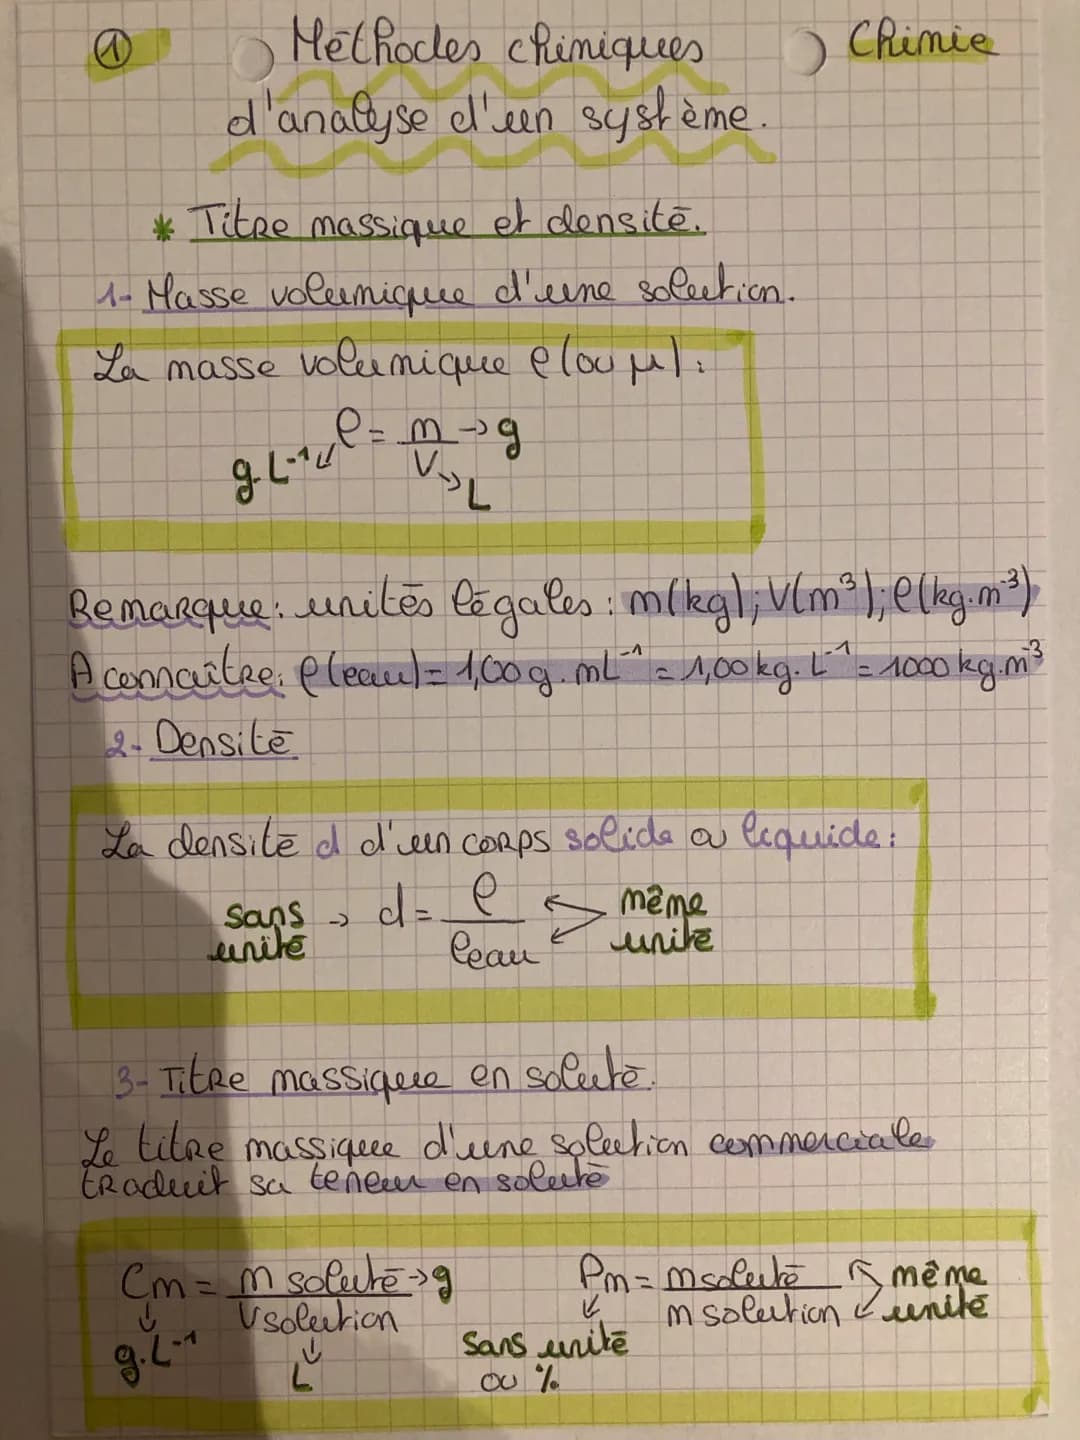 ① Méthodes chimiques Chimie
d'analyse d'un système.
* Titre massique et densité.
1- Masse volumique d'une solution.
La masse volumique ρ (ou μ) :
ρ = m → g
g.L⁻¹ V → L
Remarque : unités légales : m(kg) ; V(m³) ; ρ(kg.m⁻³)
A connaître : ρ(eau) = 1,00 g.mL⁻¹ = 1,00 kg.L⁻¹ = 1000 kg.m⁻³
2- Densité
La densité d d'un corps solide ou liquide :
sans unité → d = ρ / ρeau même unité
3- Titre massique en soluté.
Le titre massique d'une solution commerciale
traduit sa teneur en soluté
Cm = m soluté → g Pm = m soluté même
V solution m solution unité
g.L⁻¹ L sans unité
ou %